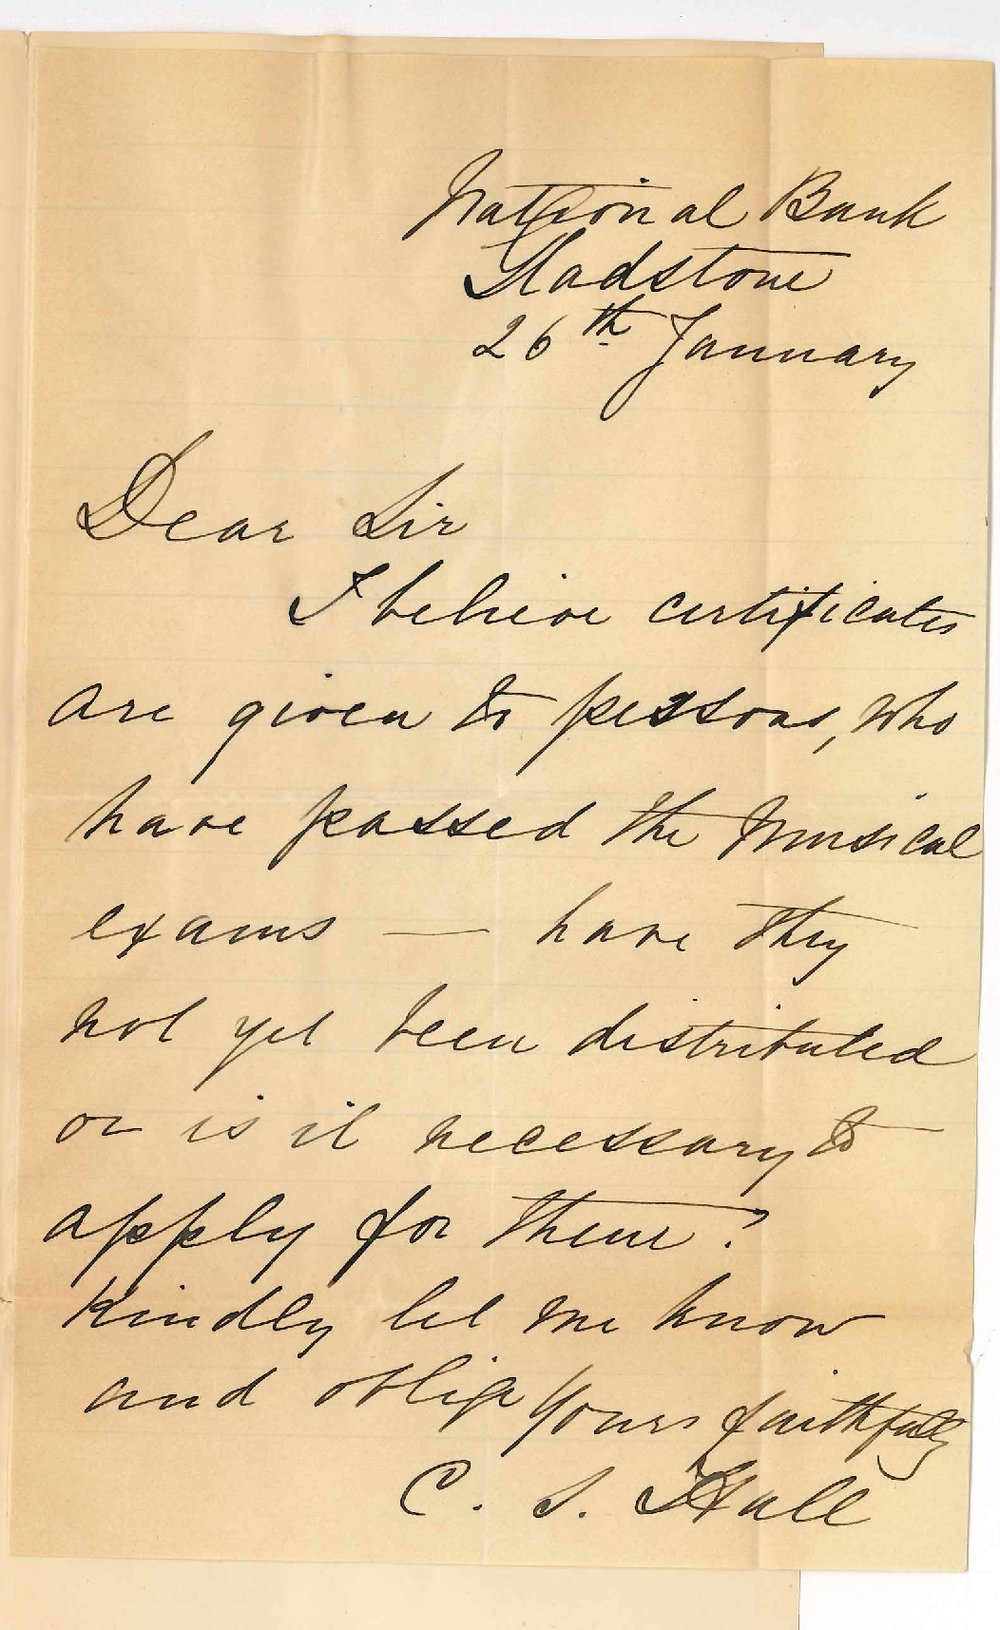 National Bank
Gladstone
26th January
Dear Sir
I believe certificates
are given to persons, who
have passed the Musical
exams — have they
not yet been distributed
or is it necessary to
apply for them?
Kindly let me know
and oblige Yours faithfully
C. S. Hall